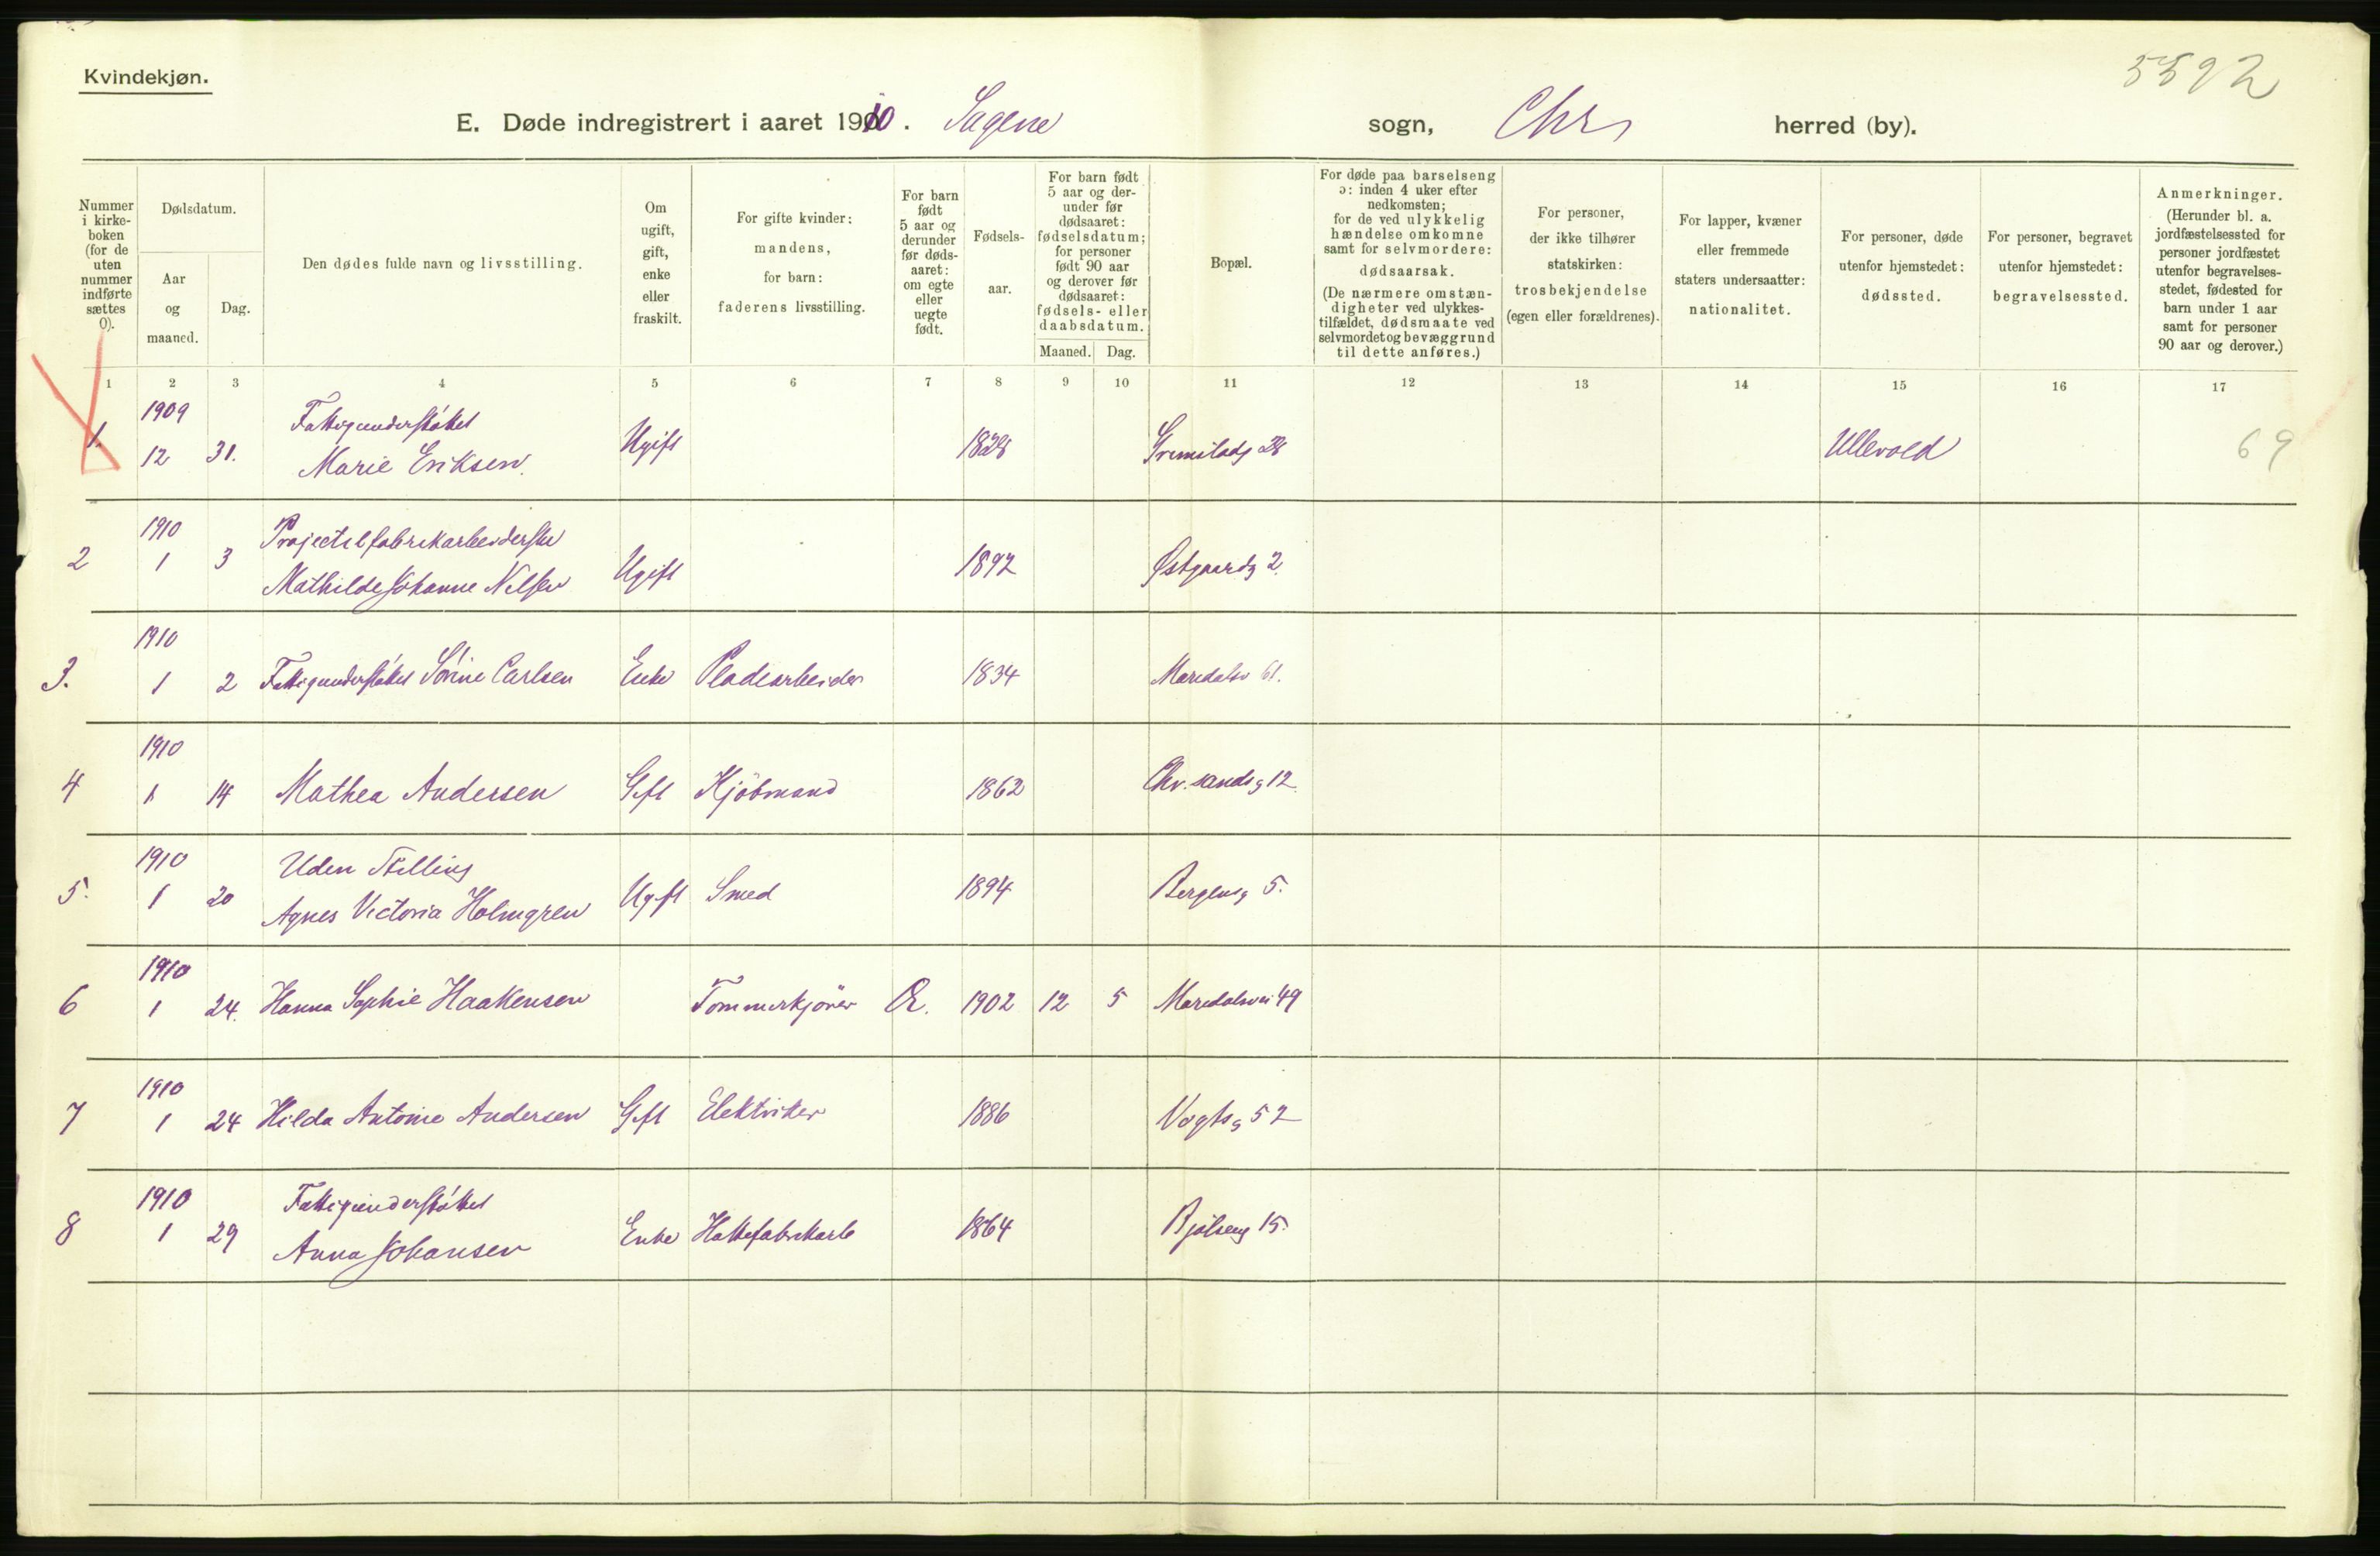 Kvindekjøn.
5592
E. Døde indregistrert i aaret 1910. Sagene sogn, Chr herred (by).
Nummer i kirke-boken (for de uten nummer indførte sættes 0).
Dødsdatum.
Aar og maaned.
Dag.
Den dødes fulde navn og livsstilling.
Om ugift, gift, enke eller fraskilt.
For gifte kvinder: mandens, for barn: faderens livsstilling.
For barn født 5 aar og derunder før døds-aaret: om egte eller uegte født.
Fødsels-aar.
For barn født 5 aar og der-under før dødsaaret: fødselsdatum; for personer født 90 aar og derover før dødsaaret: fødsels- eller daabsdatum.
Maaned. Dag.
Bopæl.
For døde paa barselseng ɔ: inden 4 uker efter nedkomsten; for de ved ulykkelig hændelse omkomne samt for selvmordere: dødsaarsak. (De nærmere omstæn-digheter ved ulykkes-tilfældet, dødsmaate ved selvmordet og bevæggrund til dette anføres.)
For personer, der ikke tilhører statskirken: trosbekjendelse (egen eller forældrenes).
For lapper, kvæner eller fremmede staters undersaatter: nationalitet.
For personer, døde utenfor hjemstedet: dødssted.
For personer, begravet utenfor hjemstedet: begravelsessted.
Anmerkninger. (Herunder bl. a. jordfæstelsessted for personer jordfæstet utenfor begravelses-stedet, fødested for barn under 1 aar samt for personer 90 aar og derover.)
1 2 3 4 5 6 7 8 9 10 11 12 13 14 15 16 17
1909 Fattigunderstøttet
1. 12 31. Marie Eriksen. Ugift 1828 Grimstadg 28 Ullevold 69
1910 Projectilfabrikarbeiderske
2 1 3 Mathilde Johanne Nilsen Ugift 1892 Østgaardg 2
1910
3. 1 2 Fattigunderstøttet Sörine Carlsen Enke Pladearbeider 1834 Maridalsv 61.
1910
4 1 14 Mathea Andersen Gift Kjöbmand 1862 Chr.sandsg 12.
1910 Uden Stilling
5. 1 20 Agnes Victoria Holmgren Ugift Smed 1894 Bergensg 5.
1910
6 1 24. Hanna Sophie Haakensen Tömmerkjörer 1902 12 5 Maridalsvei 49
1910
7 1 24 Hilda Antonie Andersen Gift Elektriker 1886 Vogtsg 52
1910 Fattigunderstøttet
8 1 29 Anna Johansen Enke Hattefabrikarb 1864 Bjølseng 15.